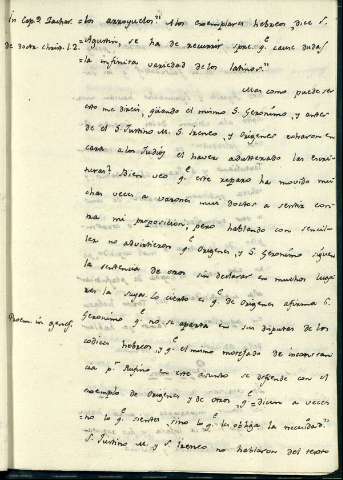 In Cap. 9 Zachar. = los arroyuelos" A los exemplares hebreos, dice S.
de doctr. christ. l. 2. = Agustin, se ha de recurrir spre. qe. cause duda
= la infinita variedad de los latinos."
Mas como puede ser
esto me diran, quando el mismo S. Geronimo, y antes
de el S. Justino M. S. Ireneo, y Origenes echaron en
cara a los Judios el haver adulterado las Escri-
turas? Bien veo qe. este reparo ha movido mu-
chas veces a varones mui doctos a sentir con-
tra mi proposicion, pero hablando con sencil-
lez no advirtieron qe. Origenes, y S. Geronimo siguen
la sentencia de otros sin declarar en muchos luga-
res la suya. lo cierto es qe. de Origenes afirma S.
Proem. in genes. Geronimo qe. no se aparta en sus disputas de los
codices hebreos, y qe. el mismo motejado de inconstan-
cia pr. Rufino en este asunto se defiende con el
exemplo de Origenes y de otros, qe. = dicen a veces
= no lo qe. sienten sino lo qe. les obliga la necesidad."
S. Justino M. y S. Ireneo no hablaron del texto